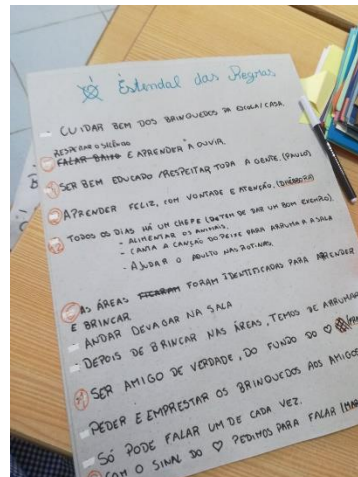 O Estendal das Regras
CUIDAR BEM DOS BRINQUEDOS DA ESCOLA/CASA.
RESPEITAR O SILÊNCIO
FALAR BAIXO E APRENDER A OUVIR.
SER BEM EDUCADO / RESPEITAR TODA A GENTE. (PAULO)
APRENDER FELIZ, COM VONTADE E ATENÇÃO. (DÉBORA)
TODOS OS DIAS HÁ UM CHEFE (DE TEM DE DAR UM BOM EXEMPLO).
- ALIMENTAR OS ANIMAIS.
- CANTA A CANÇÃO DO PEIXE PARA ARRUMAR A SALA
- AJUDAR O ADULTO NAS ROTINAS.
AS ÁREAS FICARAM FORAM IDENTIFICADAS PARA APRENDER
E BRINCAR
ANDAR DEVAGAR NA SALA
DEPOIS DE BRINCAR NAS ÁREAS, TEMOS DE ARRUMAR
SER AMIGO DE VERDADE, DO FUNDO DO ♡
PEDER E EMPRESTAR OS BRINQUEDOS AOS AMIGOS
SÓ PODE FALAR UM DE CADA VEZ.
COM O SINAL DO ♡ PEDIMOS PARA FALAR